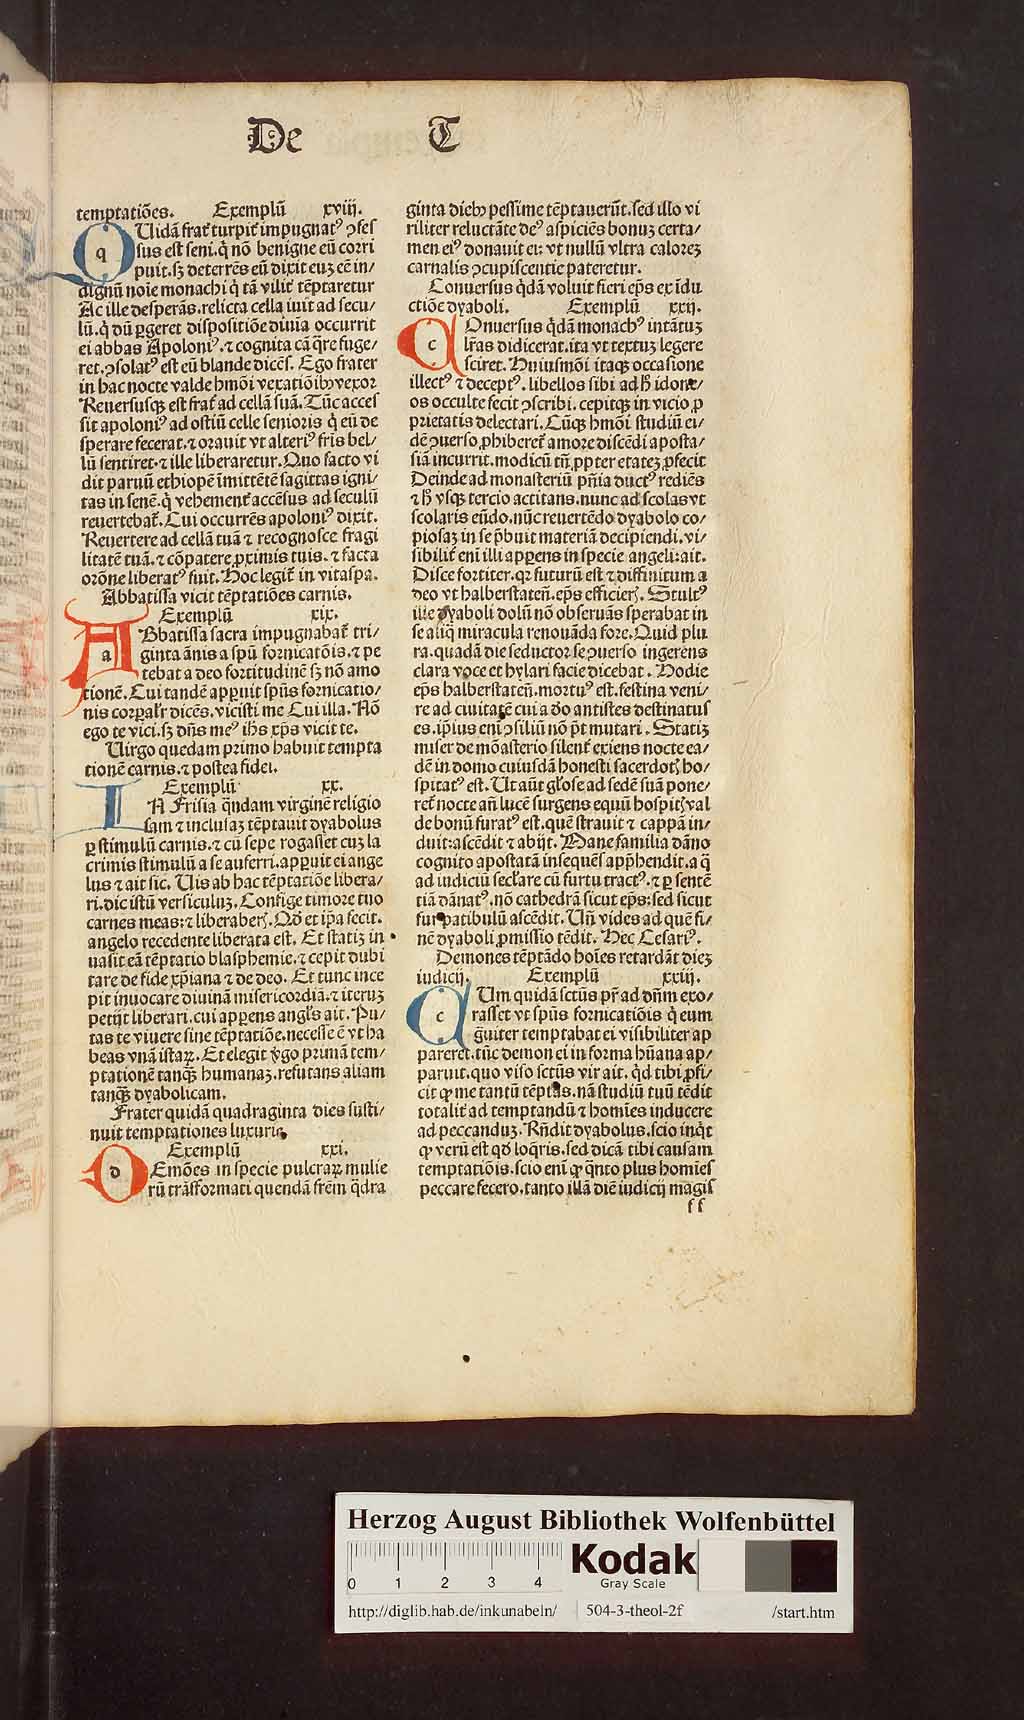 De T
temptatiōes. Exemplū xviij.
QUidā frat̄ turpit̄ impugnatꝰ ꝯfes
sus est seni. q̇ nō benigne eū corri
puit. sꝫ deterrēs eū dixit euꝫ eē in/
dignū noīe monachi q̇ tā vilit̄ tēptaretur
Ac ille desperās. relicta cella iuit ad secu/
lū. q̇ dū ꝑgeret dispositiōe diuīa occurrit
ei abbas Apoloniꝰ. ⁊ cognita cā q̄re fuge/
ret. ꝯsolatꝰ est eū blande dicēs. Ego frater
in hac nocte valde hmōi vexatiōibꝰ vexor
Reuersusqꝫ est frat̄ ad cellā suā. Tūc acces
sit apoloniꝰ ad ostiū celle senioris q̇ eū de
sperare fecerat. ⁊ orauit vt alteriꝰ fr̄is bel/
lū sentiret. ⁊ ille liberaretur. Quo facto vi
dit paruū ethiopē īmittētē sagittas igni/
tas in senē. q̇ vehement̄ accēsus ad seculū
reuertebat̄. Cui occurrēs apoloniꝰ dixit.
Reuertere ad cellā tuā ⁊ recognosce fragi
litatē tuā. ⁊ cōpatere ꝓximis tuis. ⁊ facta
orōne liberatꝰ fuit. Hoc legit̄ in vitaspa.
Abbatissa vicit tēptatiōes carnis.
Exemplū xix.
ABbatissa sacra impugnabat̄ tri/
ginta ānis a spū fornicatōis. ⁊ pe
tebat a deo fortitudinē sꝫ nō amo
tionē. Cui tandē apꝑuit spūs fornicatio/
nis corꝑalr̄ dicēs. vicisti me Cui illa. Nō
ego te vici. sꝫ dn̄s meꝰ ih̄s xp̄s vicit te.
Uirgo quedam primo habuit tempta
tionē carnis. ⁊ postea fidei.
Exemplū xx.
IN Frisia q̄ndam virginē religio
sam ⁊ inclusaꝫ tēptauit dyabolus
ꝑ stimulū carnis. ⁊ cū sepe rogasset cuꝫ la
crimis stimulū a se auferri. apꝑuit ei ange
lus ⁊ ait sic. Uis ab hac tēptatiōe libera/
ri. dic istū versiculuꝫ. Confige timore tuo
carnes meas: ⁊ liberaberꝭ. Qd̄ et ip̄a fecit.
angelo recedente liberata est. Et statiꝫ in
uasit eā tēptatio blasphemie. ⁊ cepit dubi
tare de fide xp̄iana ⁊ de deo. Et tunc ince
pit inuocare diuinā misericordiā. ⁊ iteruꝫ
petijt liberari. cui apꝑens angl̄s ait. Pu/
tas te viuere sine tēptatiōe. necesse ē vt ha
beas vnā istaꝝ. Et elegit v̇go primā tem/
ptationē tanqꝫ humanaꝫ. refutans aliam
tanqꝫ dyabolicam.
Frater quidā quadraginta dies susti/
nuit temptationes luxurie.
Exemplū xxi.
DEmōes in specie pulcraꝝ mulie
rū trāsformati quendā fr̄em q̄dra
ginta diebꝫ pessime tēptauerūt. sed illo vi
riliter reluctāte deꝰ aspiciēs bonuꝫ certa/
men eiꝰ donauit ei: vt nullū vltra caloreꝫ
carnalis ꝯcupiscentie pateretur.
Conuersus q̇dā voluit fieri ep̄s ex idu
ctiōe dyaboli. Exemplū xxij.
COnuersus q̇dā monachꝰ intātuꝫ
lr̄as didicerat. ita vt textuꝫ legere
sciret. Huiusmōi itaqꝫ occasione
illectꝰ ⁊ deceptꝰ. libellos sibi ad h̄ idone/
os occulte fecit ꝯscribi. cepitqꝫ in vicio ꝓ
prietatis delectari. Cūqꝫ hmōi studiū ei/
dē ꝯuerso ꝓhiberet̄ amore discēdi aposta/
siā incurrit. modicū tn̄ ꝓpter etateꝫ ꝓfecit
Deinde ad monasteriū pn̄ia ductꝰ rediēs
⁊ h̄ vsqꝫ tercio actitans. nunc ad scolas vt
scolaris eūdo. nūc reuertēdo dyabolo co/
piosaꝫ in se p̄buit materiā decipiendi. vi/
sibilit̄ eni illi apꝑens in specie angeli: ait.
Disce fortiter. qꝛ futurū est ⁊ diffinitum a
deo vt halberstaten̄. ep̄s efficierꝭ. Stultꝰ
ille dyaboli dolū nō obseruās sperabat in
se aliq̄ miracula renouāda fore. Quid plu
ra. quadā die seductor se ꝯuerso ingerens
clara voce et hylari facie dicebat. Hodie
ep̄s halberstaten̄. mortuꝰ est. festina veni/
re ad ciuitatē cui a do antistes destinatus
es. ip̄ius enī ꝯsiliū nō p̄t mutari. Statiꝫ
miser de mōasterio silent̄ exiens nocte ea/
dē in domo cuiusdā honesti sacerdotꝭ ho/
spitatꝰ est. Ut aūt gl̄ose ad sedē suā pone/
ret̄ nocte an̄ lucē surgens equū hospitꝭ val
de bonū furatꝰ est. quē strauit ⁊ cappā in/
duit: ascēdit ⁊ abijt. Mane familia dāno
cognito apostatā insequēs app̄hendit. a q̄
ad iudiciū secl̄are cū furtu tractꝰ. ⁊ ꝑ sentē
tiā dānatꝰ. nō cathedrā sicut ep̄s: sed sicut
fur patibulū ascēdit. Un̄ vides ad quē fi/
nē dyaboli ꝓmissio tēdit. Hec Cesariꝰ.
Demones tēptādo hoīes retardāt dieꝫ
iudicij. Exemplū xxiij.
CUm quidā sctūs pr̄ ad dn̄m exo/
rasset vt spūs fornicatiōis q̇ eum
gͣuiter temptabat ei visibiliter ap
pareret. tūc demon ei in forma hūana ap/
paruit. quo viso sctūs vir ait. q̇d tibi ꝓfi/
cit ꝙ me tantū tēptas. nā studiū tuū tēdit
totalit̄ ad temptandū ⁊ homīes inducere
ad peccanduꝫ. Rn̄dit dyabolus. scio inq̇t
ꝙ verū est qd̄ loq̇ris. sed dicā tibi causam
temptatiōis. scio enī ꝙ q̄nto plus homīes
peccare fecero. tanto illā diē iudicij magis
ff
Herzog August Bibliothek Wolfenbüttel
0 1 2 3 4
Kodak
Gray Scale
http://diglib.hab.de/inkunabeln/ 504-3-theol-2f /start.htm